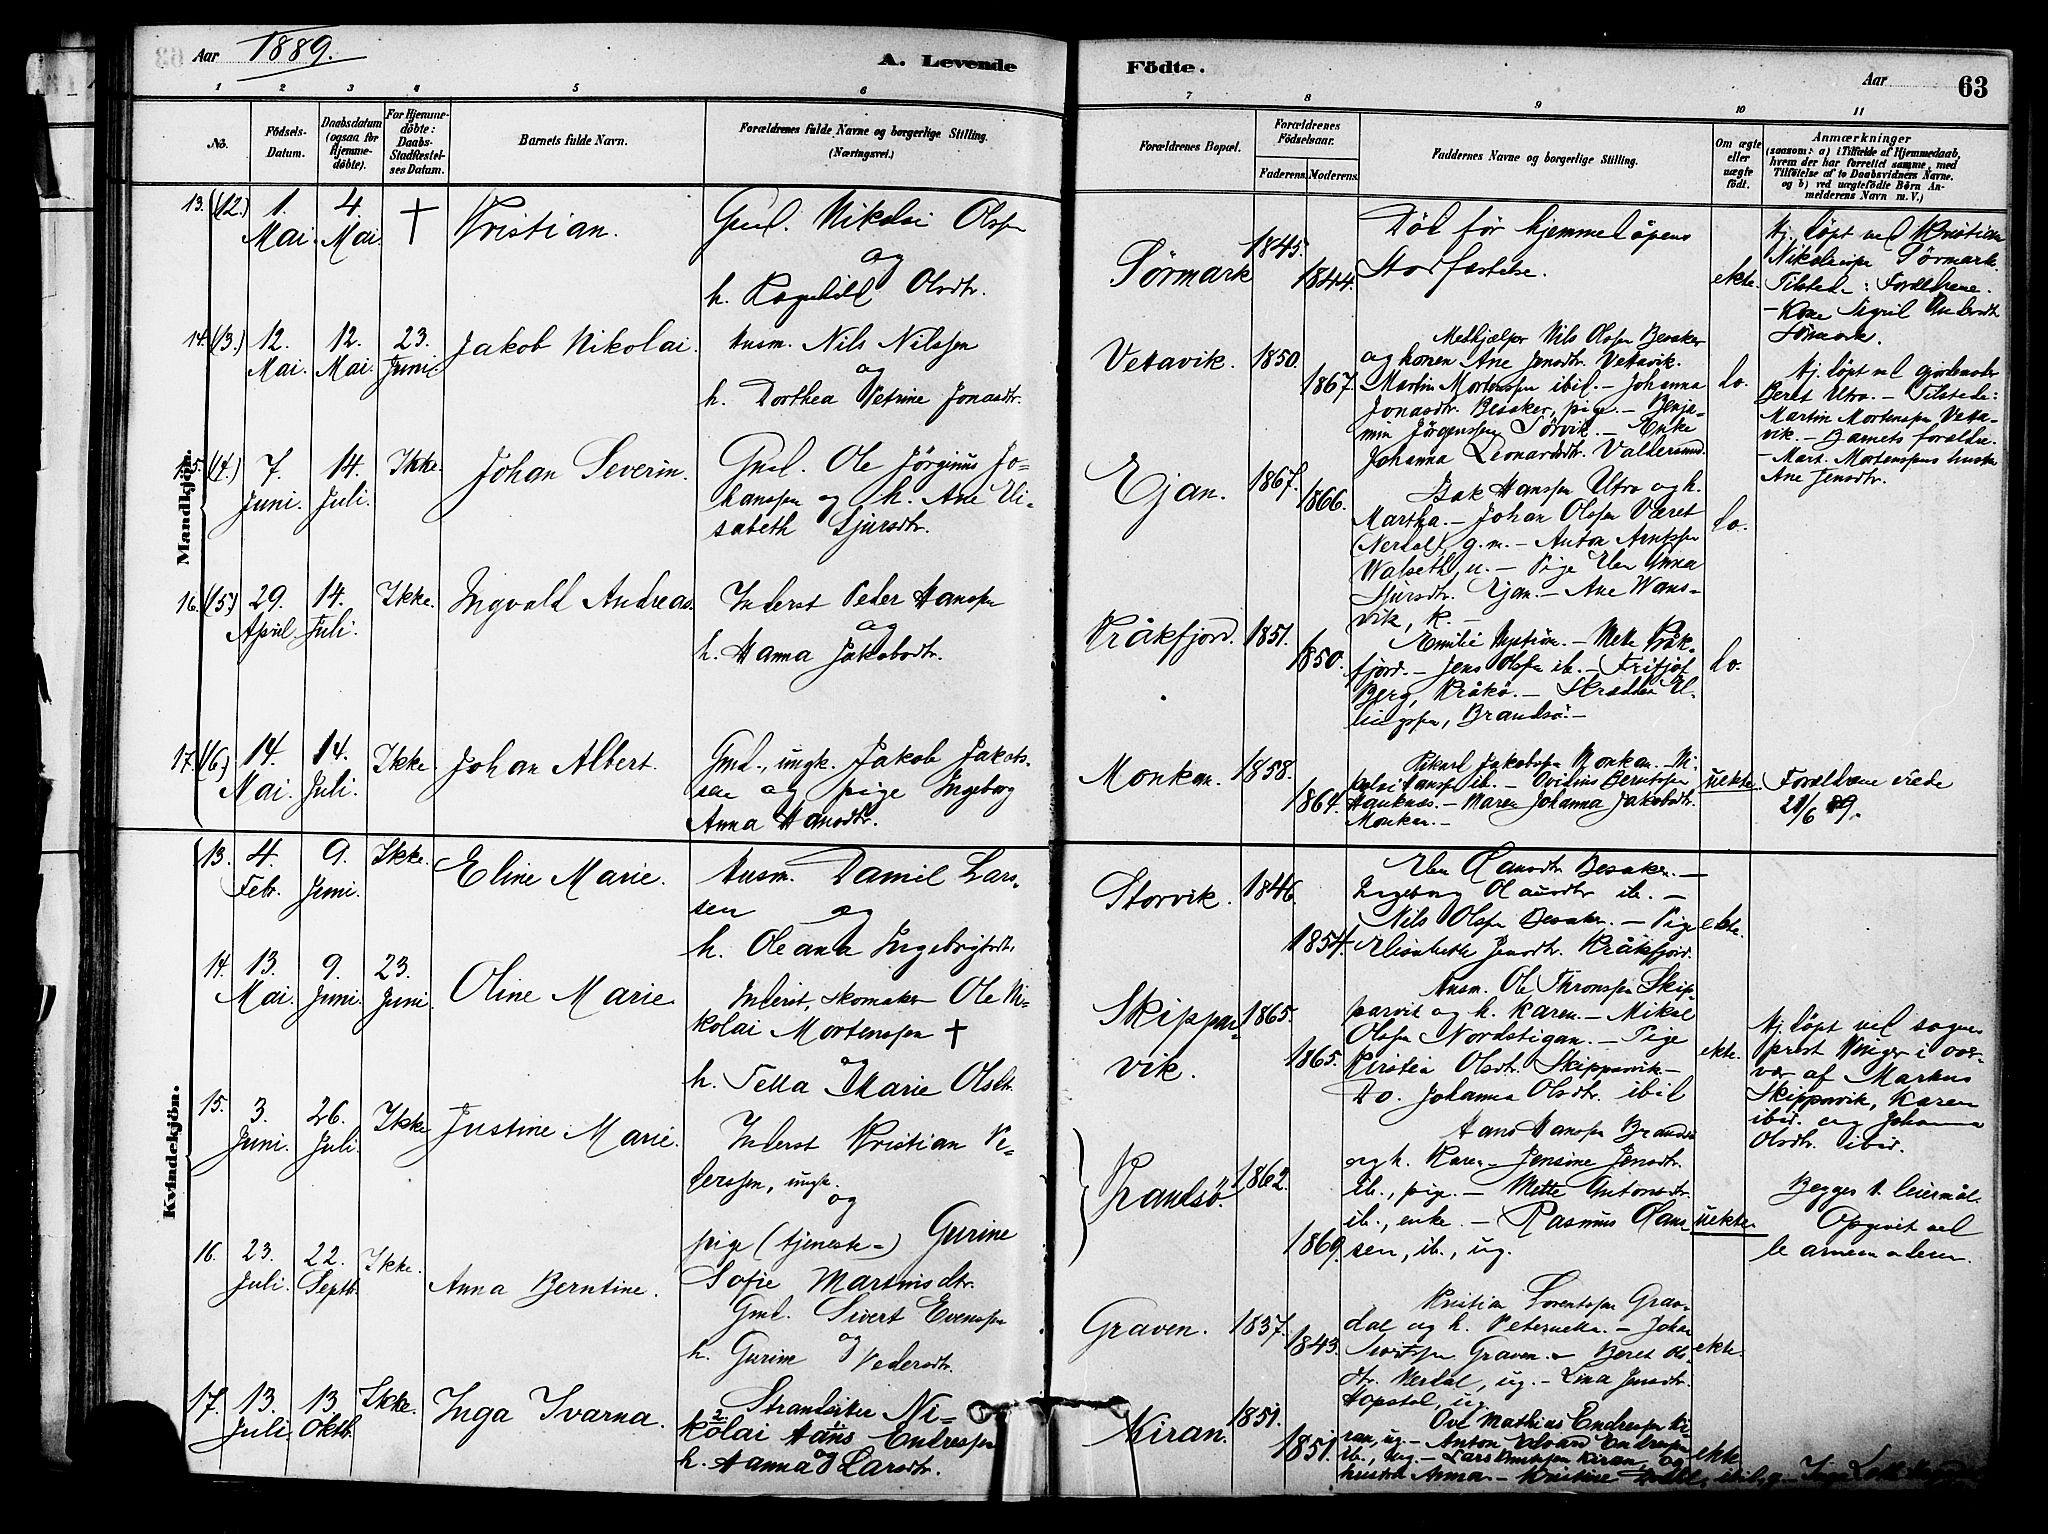 Aar 1889.
A. Levende
Födte.
Aar
63
1 2 3 4 5 6 7 8 9 10 11
No.
Födsels-
Datum.
Daabsdatum
(ogsaa for
Hjemme-
döbte).
For Hjemme-
döbte:
Daabs-
Stadfæstel-
ses Datum.
Barnets fulde Navn.
Forældrenes fulde Navne og borgerlige Stilling.
(Næringsvei.)
Forældrenes Bopæl.
Forældrenes
Födselsaar.
Faderens. Moderens.
Faddernes Navne og borgerlige Stilling.
Om ægte
eller
uægte
födt.
Anmærkninger
(saasom: a) i Tilfælde af Hjemmedaab,
hvem der har forrettet samme, med
Tilföielse af to Daabsvidners Navne.
og b) ved uægtefödte Börn An-
melderens Navn m. V.)
Mandkjön.
13. (12.) 1. Mai. 4. Mai. † Kristian.
Gmd. Nikolai Olsen
og
h. Ragnhild Olsdtr.
Sörmark
1845.
1844.
Död för hjemmedåpens
Stadfæstelse.
ekte.
Hj. döpt ved Kristian
Nikolaisen Sörmark.
Tilstede: Forældrene.
14. (13.) 12. Mai. 12. Mai. 23. Juni. Jakob Nikolai.
Husm. Nils Nilssen
og
h. Dorthea Petrine Jonasdtr.
Vetavik.
1850.
1867.
Medhjælper Nils Olsen Besaker
og konen Ane Jensdtr. Vetavik.
Martin Mortenssen ibid. – Johanna
Jonasdtr. Besaker, pige. – Benja-
min Jörgenssen Sörvik. – Enke
Johanna Leonardsdtr. Valdersund.
do.
Hj. döpt ved gjordmoder
Beret Utro. – Tilstede:
Martin Mortenssen Veta-
vik. – Barnets forældre.
– Mart. Mortenssens hustru
Ane Jensdtr.
15. (14.) 7. Juni. 14. Juli. Ikke. Johan Severin.
Gmd. Ole Jörginus Jo-
hanssen og h. Ane Eli-
sabeth Sjursdtr.
Ejan.
1867.
1866.
Isak Hanssen Utro og h.
Martha. – Johan Olssen Været
(Nerdal), g.m. – Anton Arntssen
Walseth, u. – Pige Elen Anna
Sjursdtr. Ejan. – Ane Wans-
vik, k. –
do.
16. (15.) 29. April. 14. Juli. Ikke. Ingvald Andreas.
Inderst Peder Hanssen
og
h. Hanna Jakobsdtr.
Kråkfjord.
1851.
1850.
Emilie Nyström. – Mette Kråk-
fjord. – Jens Olssen ib. – Fritjof
Berg, Kråkö. – Skrædder El-
lingssen, Brandsö. –
do.
17. (16.) 14. Mai. 14. Juli. Ikke. Johan Albert.
Gmd., ungk. Jakob Jakobs-
sen og pige Ingeborg
Anna Hansdtr.
Monkan.
1858.
1864.
Rikard Jakobssen Monkan. – Ni-
kolai Hanssen ib. – Ovidius Berntssen
Hauknes. – Maren Johanna Jakobsdtr.
Monkan. –
uekte.
Forældrene viede
21/6 89.
Kvindekjön.
13. 4. Febr. 9. Juni. Ikke. Eline Marie.
Husm. Daniel Lars-
sen og
h. Oleana Ingebrigtsdtr.
Storvik.
1846.
1854.
Elen Hansdtr. Besaker. –
Ingeborg Olausdtr ib. –
Nils Olssen Besaker. – Pige
Elisabeth Jensdtr. Kråkfjord.
ekte.
14. 13. Mai. 9. Juni. 23. Juni. Oline Marie.
Inderst, skomaker Ole Ni-
kolai Mortenssen †
og
h. Tella Marie Olsdtr.
Skippar-
vik.
1865.
1865.
Husm. Ole Thronssen Skip-
parvik og h. Karen. – Mikal
Olssen Nordstigan. – Pige
Kirstia Olsdtr. Skipparvik –
Do. Johanna Olsdtr. ibid
ekte.
Hj. döpt ved sogne-
prest Krüger i over-
vær af Markus
Skipparvik, Karen
ibid. og Johanna
Olsdtr. ibid.
15. 3. Juni. 26. Juli. Ikke. Justine Marie.
Inderst Kristian Pe-
derssen, ungk.
og
pige (tjeneste-) Gurine
Sofie Martinsdtr.
Brandsö.
1862.
1869.
Hans Hanssen Brandsö
og h. Karen. Jensine Jensdtr.
ib., pige. – Mette Antonsdtr.
ib., enke. – Rasmus Hans-
sen, ib., ug.
uekte.
Begges 1. leiermål.
Opgivet ved
16. 23. Juli. 22. Septb. Ikke. Anna Berntine.
Gmd. Sivert Evenssen
og
h. Gurine Pedersdtr.
Graven.
1837.
1843.
Kristian Lorentssen Grav-
dal og h. Peternella. – Johan
Sivertssen Graven. – Beret Ols-
dtr. Nerdal, ug. – Lina Jensdtr.
Hopstad, ug.
ekte.
17. 13. Juli. 13. Oktb. Ikke. Inga Ivarna.
Strandsitter Ni-
kolai Hans Endressen
og
h. Hanna Larsdtr.
Kiran.
1851.
1851.
Ove Mathias Endressen Ki-
ran, ug. – Anton Edvard Endressen
ib., ug. – Lars Knutssen Kiran, og
hustru Anna. – Kristine
ekte.